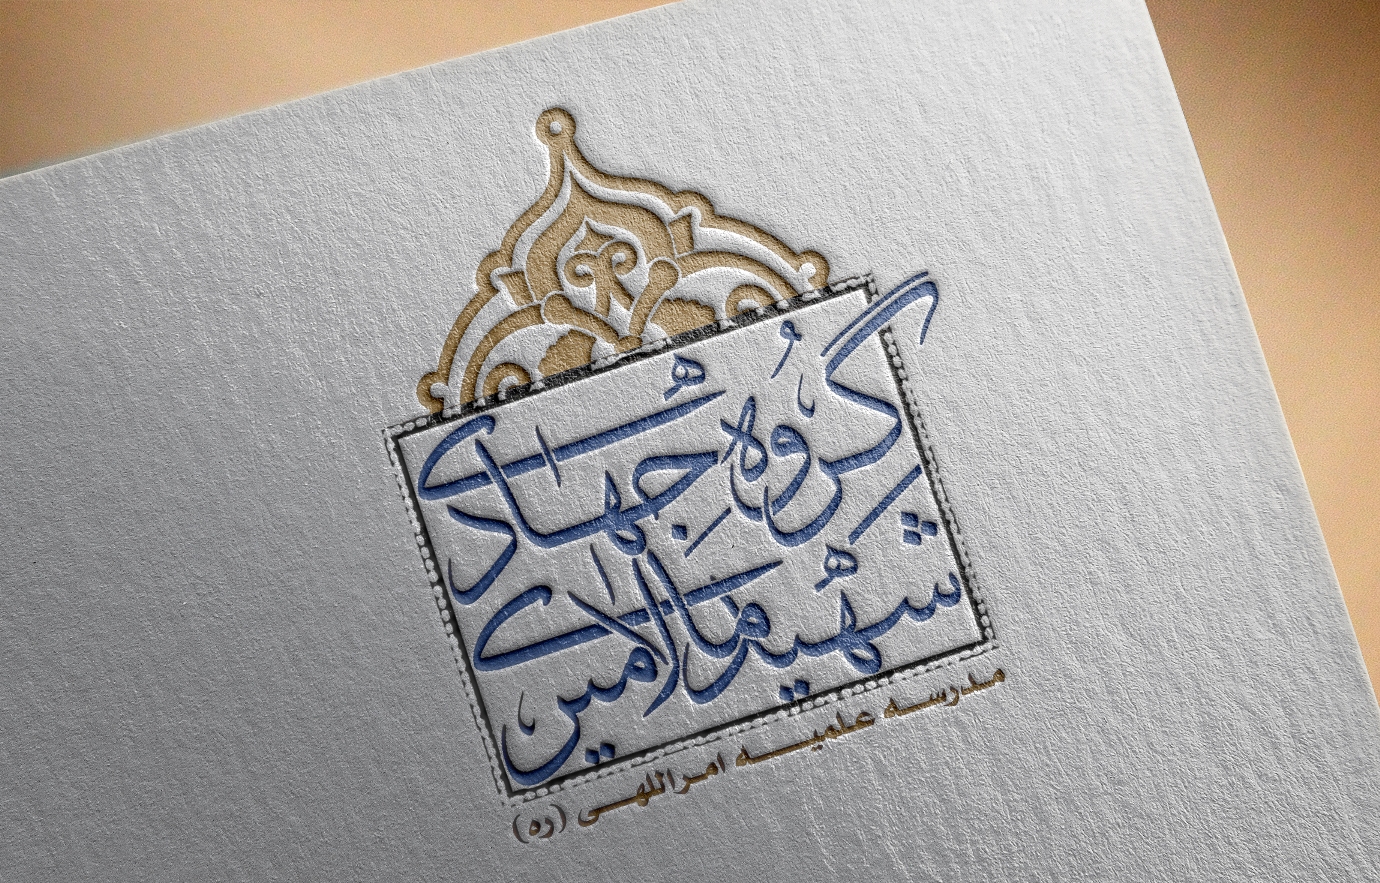 گروه جهادی
شهید مالامیری
مدرسه علمیه امراللهی (ره)